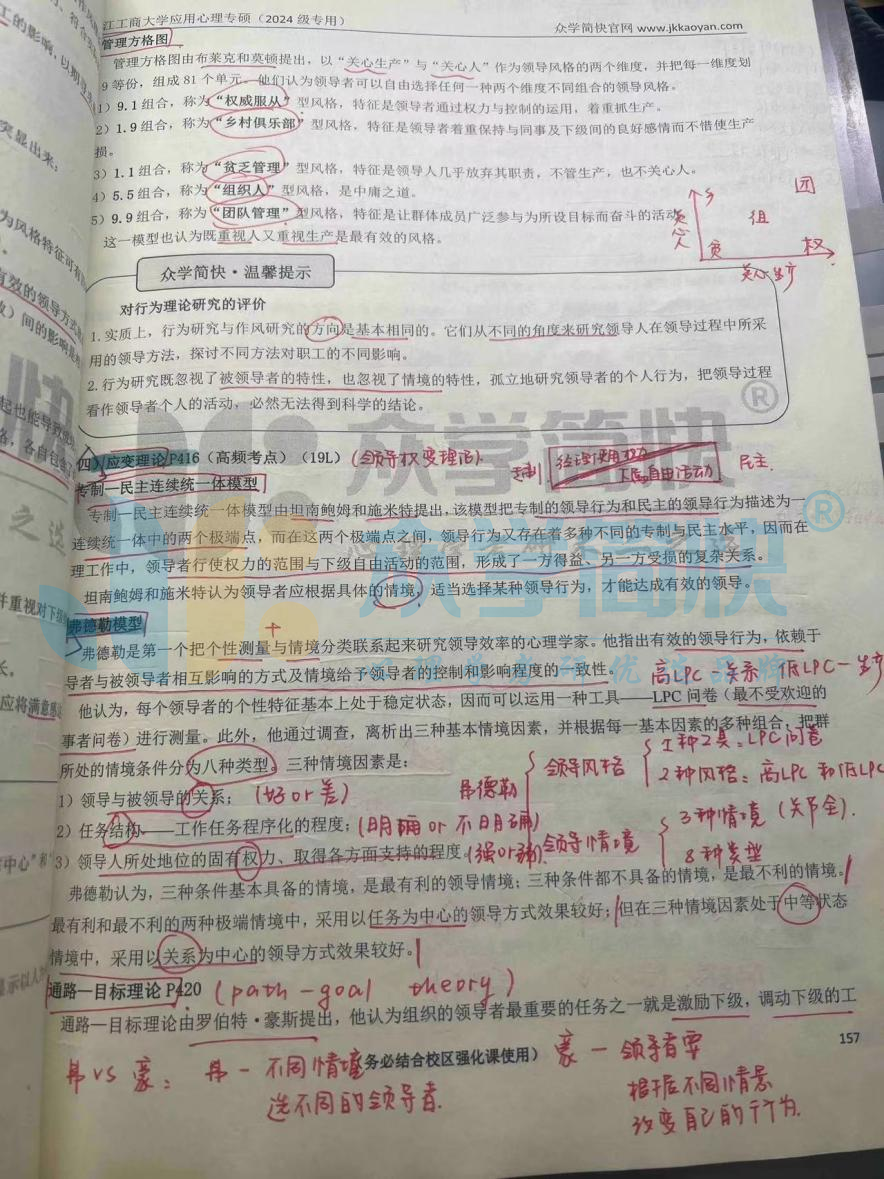 江工商大学应用心理专硕（2024 级专用）
众学简快官网 www.jkkaoyan.com
管理方格图
管理方格图由布莱克和莫顿提出，以“关心生产”与“关心人”作为领导风格的两个维度，并把每一维度划
9 等份，组成 81 个单元。他们认为领导者可以自由选择任何一种两个维度不同组合的领导风格。
1）9.1 组合，称为“权威服从”型风格，特征是领导者通过权力与控制的运用，着重抓生产。
2）1.9 组合，称为“乡村俱乐部”型风格，特征是领导者着重保持与同事及下级间的良好感情而不惜使生产
损。
3）1.1 组合，称为“贫乏管理”型风格，特征是领导人几乎放弃其职责，不管生产，也不关心人。
4）5.5 组合，称为“组织人”型风格，是中庸之道。
5）9.9 组合，称为“团队管理”型风格，特征是让群体成员广泛参与为所设目标而奋斗的活动
这一模型也认为既重视人又重视生产是最有效的风格。
乡 团
关心人 组
贫 权
关心生产
众学简快·温馨提示
对行为理论研究的评价
1. 实质上，行为研究与作风研究的方向是基本相同的。它们从不同的角度来研究领导人在领导过程中所采
用的领导方法，探讨不同方法对职工的不同影响。
2. 行为研究既忽视了被领导者的特性，也忽视了情境的特性，孤立地研究领导者的个人行为，把领导过程
看作领导者个人的活动，必然无法得到科学的结论。
四）应变理论 P416（高频考点）（19L）（领导权变理论）
专制 经理使用权力 下属自由活动 民主
专制—民主连续统一体模型
专制—民主连续统一体模型由坦南鲍姆和施米特提出，该模型把专制的领导行为和民主的领导行为描述为一
连续统一体中的两个极端点，而在这两个极端点之间，领导行为又存在着多种不同的专制与民主水平，因而在
理工作中，领导者行使权力的范围与下级自由活动的范围，形成了一方得益、另一方受损的复杂关系。
坦南鲍姆和施米特认为领导者应根据具体的情境，适当选择某种领导行为，才能达成有效的领导。
弗德勒模型
弗德勒是第一个把个性测量与情境分类联系起来研究领导效率的心理学家。他指出有效的领导行为，依赖于
导者与被领导者相互影响的方式及情境给予领导者的控制和影响程度的一致性。
高LPC－关系 低LPC－生产
他认为，每个领导者的个性特征基本上处于稳定状态，因而可以运用一种工具——LPC 问卷（最不受欢迎的
事者问卷）进行测量。此外，他通过调查，离析出三种基本情境因素，并根据每一基本因素的多种组合，把群
所处的情境条件分为八种类型。三种情境因素是：
1）领导与被领导的关系；（好or差）
2）任务结构——工作任务程序化的程度；（明确or不明确）
3）领导人所处地位的固有权力、取得各方面支持的程度（强or弱）
弗德勒
领导风格
1种工具：LPC问卷
2种风格：高LPC和低LPC
领导情境
3种情境（关节全）.
8种类型
弗德勒认为，三种条件基本具备的情境，是最有利的领导情境；三种条件都不具备的情境，是最不利的情境。
最有利和最不利的两种极端情境中，采用以任务为中心的领导方式效果较好；但在三种情境因素处于中等状态
情境中，采用以关系为中心的领导方式效果较好。
通路—目标理论 P420（path-goal theory）
通路—目标理论由罗伯特·豪斯提出，他认为组织的领导者最重要的任务之一就是激励下级，调动下级的工
157
务必结合校区强化课使用）
弗 VS 豪：弗－不同情境
选不同的领导者.
豪－领导者要
根据不同情景
改变自己的行为.
众学简快®